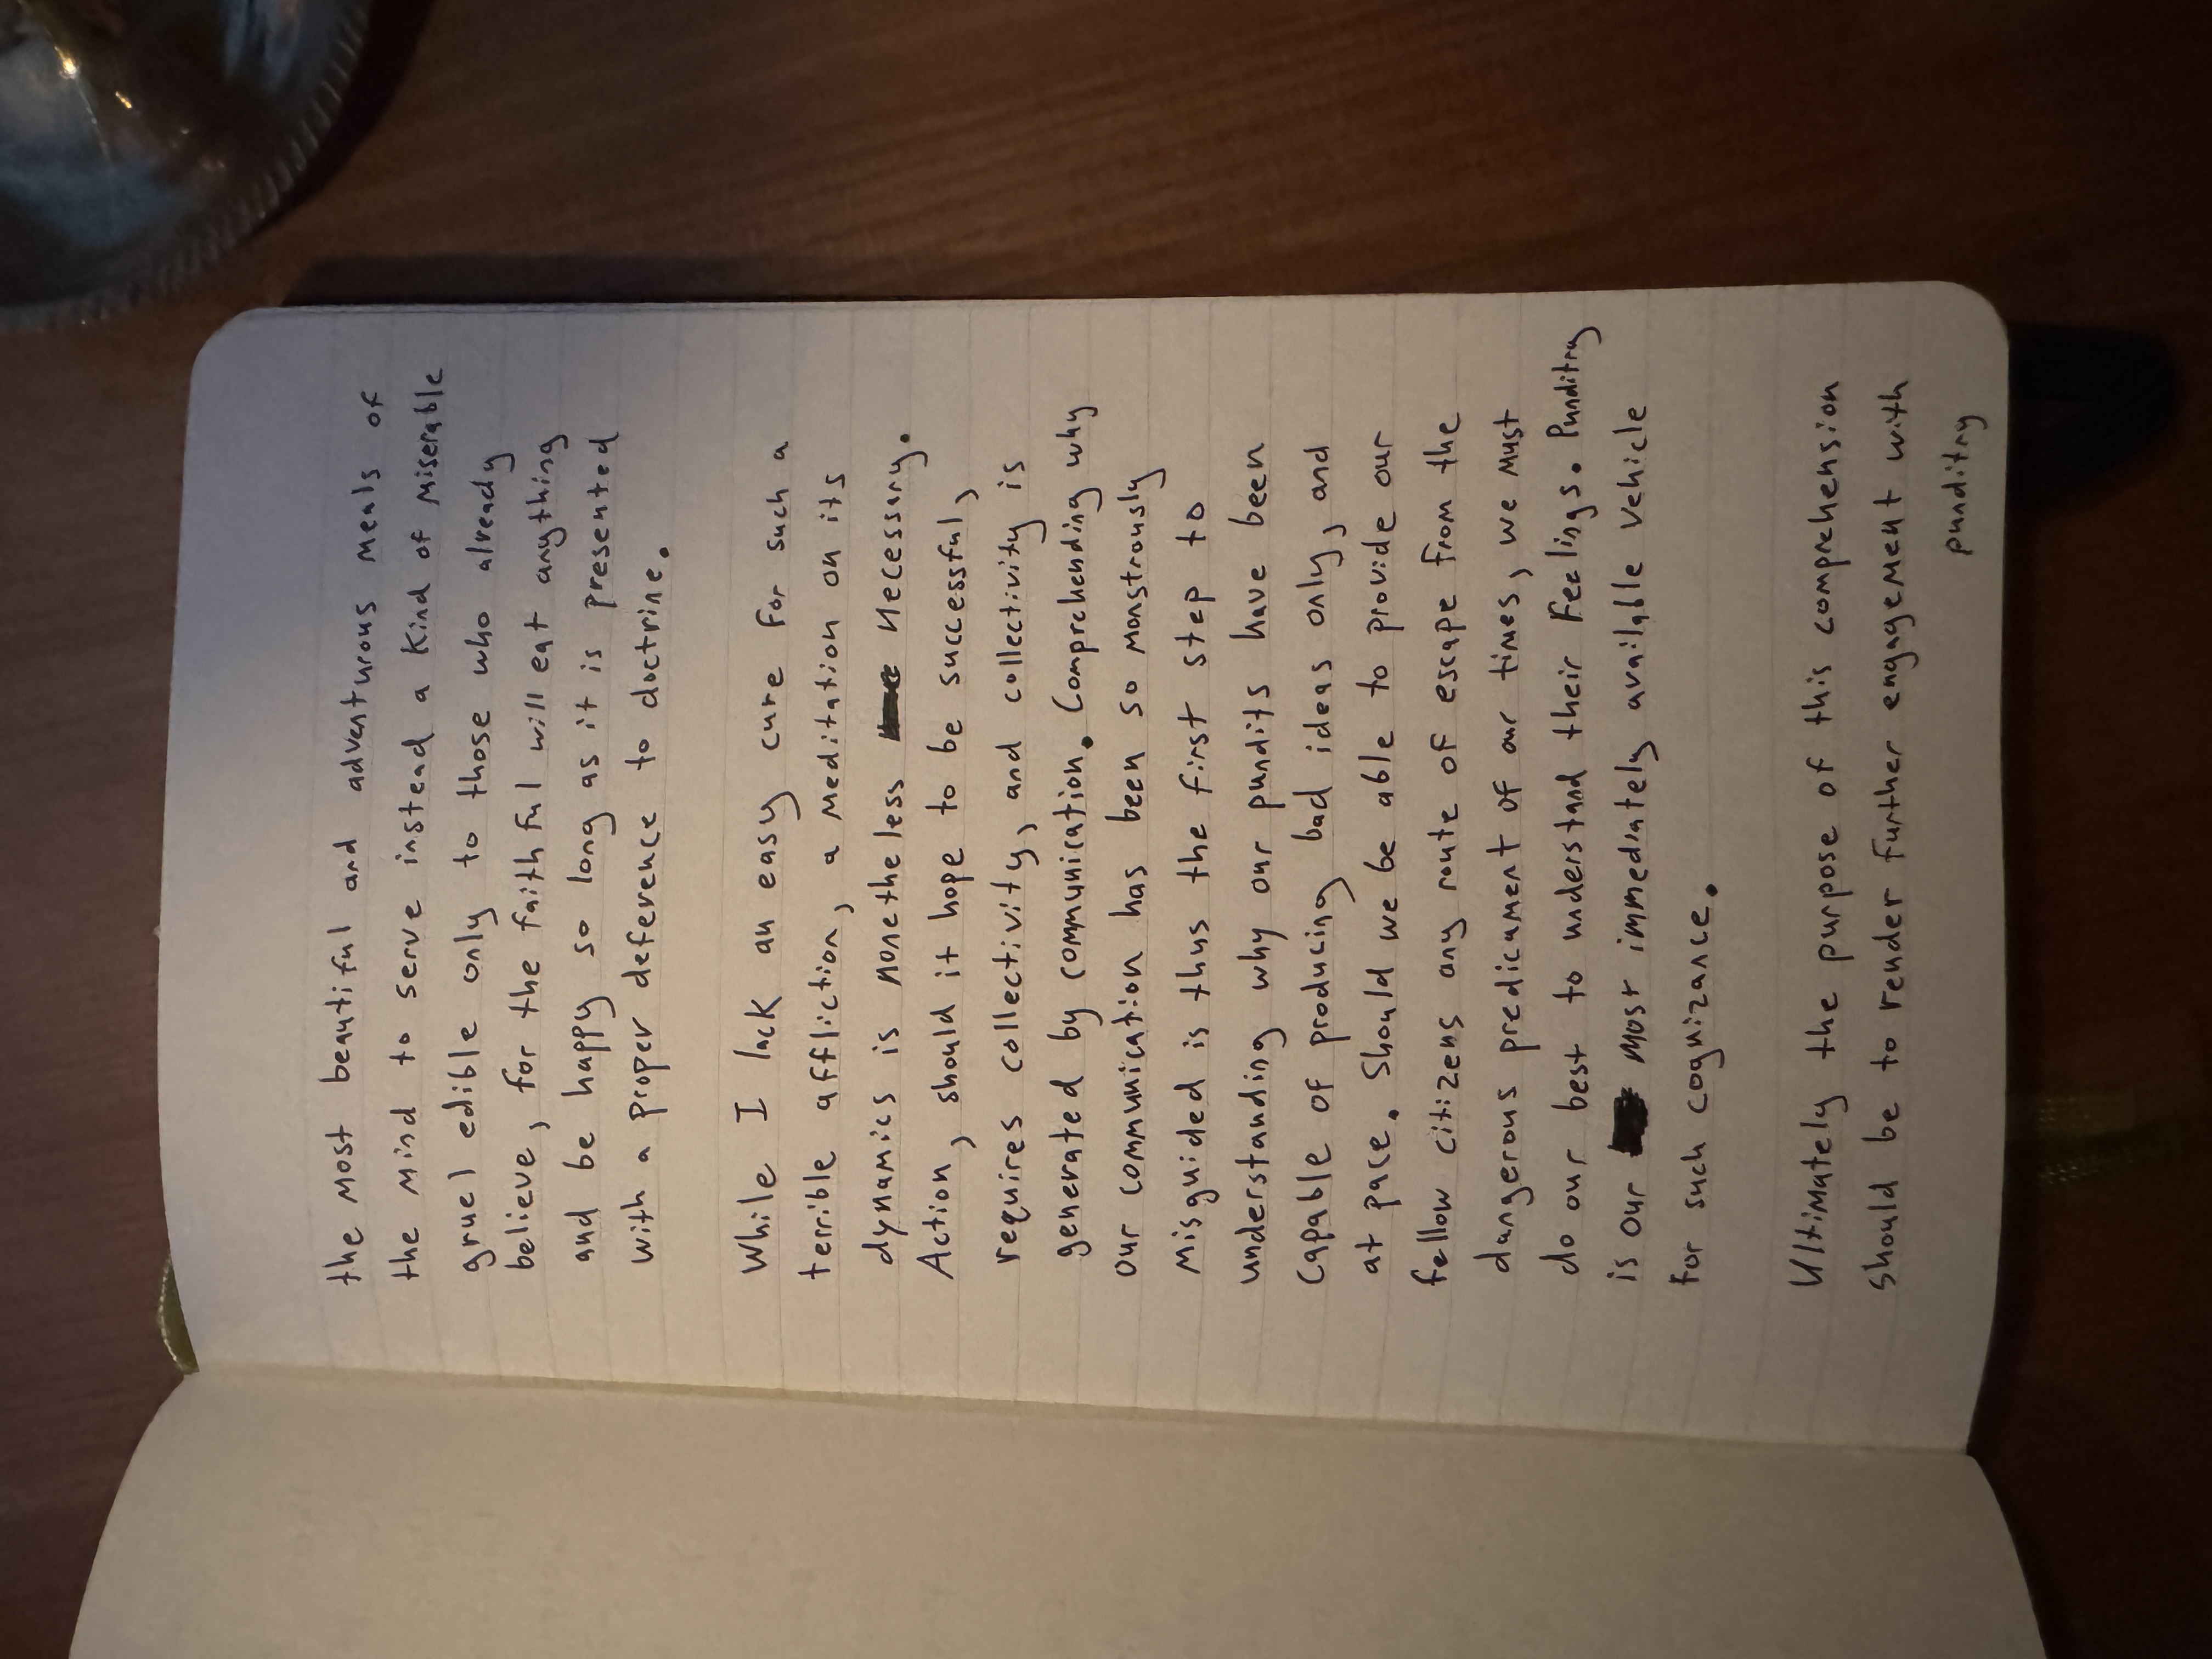 the most beautiful and adventurous meals of
the mind to serve instead a kind of miserable
gruel edible only to those who already
believe, for the faithful will eat anything
and be happy so long as it is presented
with a proper deference to doctrine.
While I lack an easy cure for such a
terrible affliction, a meditation on its
dynamics is nonetheless necessary.
Action, should it hope to be successful,
requires collectivity, and collectivity is
generated by communication. Comprehending why
our communication has been so monstrously
misguided is thus the first step to
understanding why our pundits have been
capable of producing bad ideas only, and
at pace. Should we be able to provide our
fellow citizens any route of escape from the
dangerous predicament of our times, we must
do our best to understand their feelings. Punditry
is our most immediately available vehicle
for such cognizance.
Ultimately the purpose of this comprehension
should be to render further engagement with
punditry